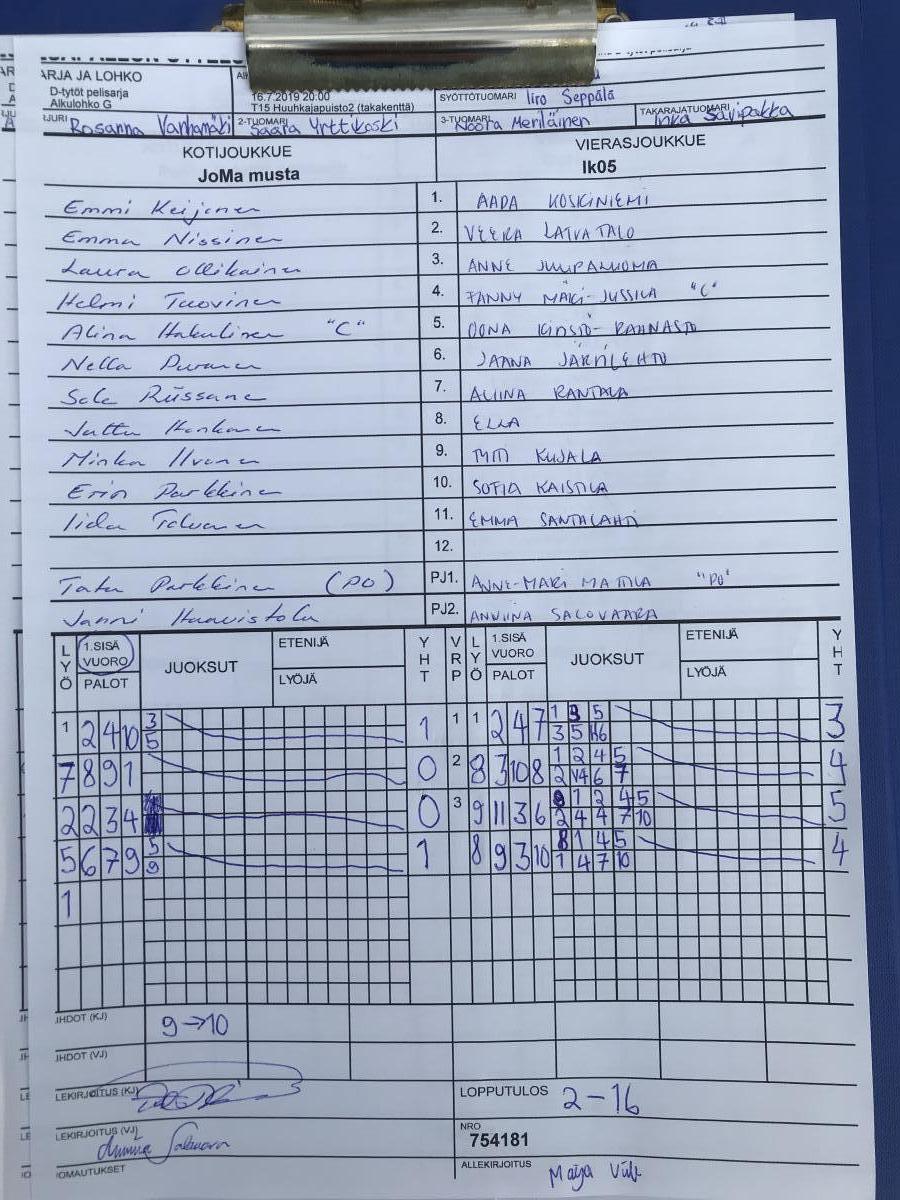 ARJA JA LOHKO
D-tytöt pelisarja
Alkulohko G
16.7.2019 20:00
T15 Huuhkajapuisto2 (takakenttä)
SYÖTTÖTUOMARI Iiro Seppälä
Rosanna Vanhamäki
2-TUOMARI Saara Yrttikoski
3-TUOMARI Noora Meriläinen
TAKARAJATUOMARI Inka Savipakka
KOTIJOUKKUE VIERASJOUKKUE
JoMa musta Ik05
Emmi Keijonen 1. AADA KOSKINIEMI
Emma Nissinen 2. VEERA LATVATALO
Laura Ollikainen 3. ANNE JUUPALUOMA
Helmi Tuovinen 4. FANNY MÄKI-JUSSILA "C"
Alina Hakulinen "C" 5. OONA
Nella Puranen 6. JAANA JÄRVILEHTO
Riissanen 7. ALIINA RANTALA
Jattu Honkanen 8. ELLA
Minka Ilvonen 9. KUJALA
Erin Parkkinen 10. SOFIA KAISTILA
Iida Tolvanen 11. EMMA SANTALAHTI
12.
Tatu Parkkinen (PO) PJ1. ANNE-MARI MATTILA "PO"
Janni Haavistola PJ2. ANNIINA SALOVAARA
LYÖ 1.SISÄ VUORO PALOT JUOKSUT ETENIJÄ LYÖJÄ YHT VRP LYÖ 1.SISÄ VUORO PALOT JUOKSUT ETENIJÄ LYÖJÄ YHT
1 2 4 10 3 5 1 1 1 2 4 7 1 3 5 3 5 3
7 8 9 1 0 2 8 3 10 8 1 2 4 5 2 4 6 7 4
2 2 3 4 0 3 9 11 3 6 1 2 4 5 2 4 4 7 10 5
5 6 7 9 5 9 1 8 9 3 10 8 1 4 5 1 4 7 10 4
1
IHDOT (KJ) 9→10
IHDOT (VJ)
LEKIRJOITUS (KJ)
LOPPUTULOS 2-16
LEKIRJOITUS (VJ) Anniina Salovaara
NRO
754181
IOMAUTUKSET
ALLEKIRJOITUS Maija